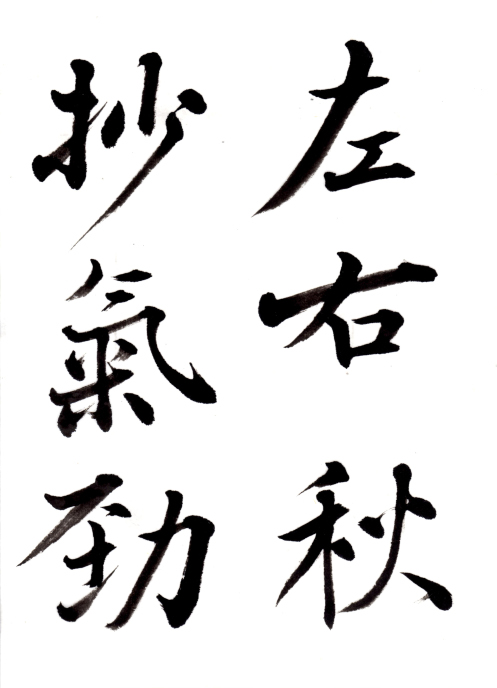 左右秋
抄氣勁